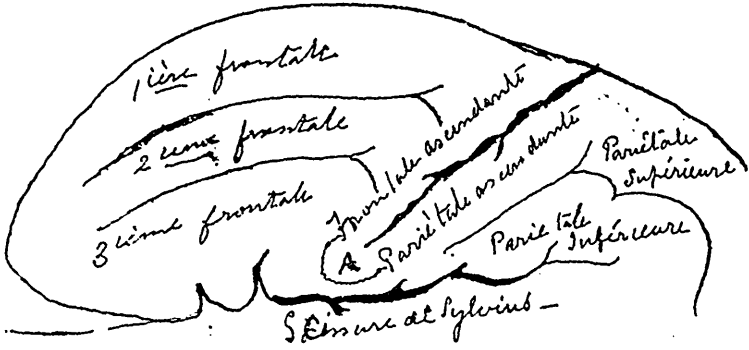 1ière frontale
2ième frontale
3ième frontale
Frontale ascendante
Pariétale ascendante
A
Pariétale
Supérieure
Pariétale
Inférieure
Scissure de Sylvius